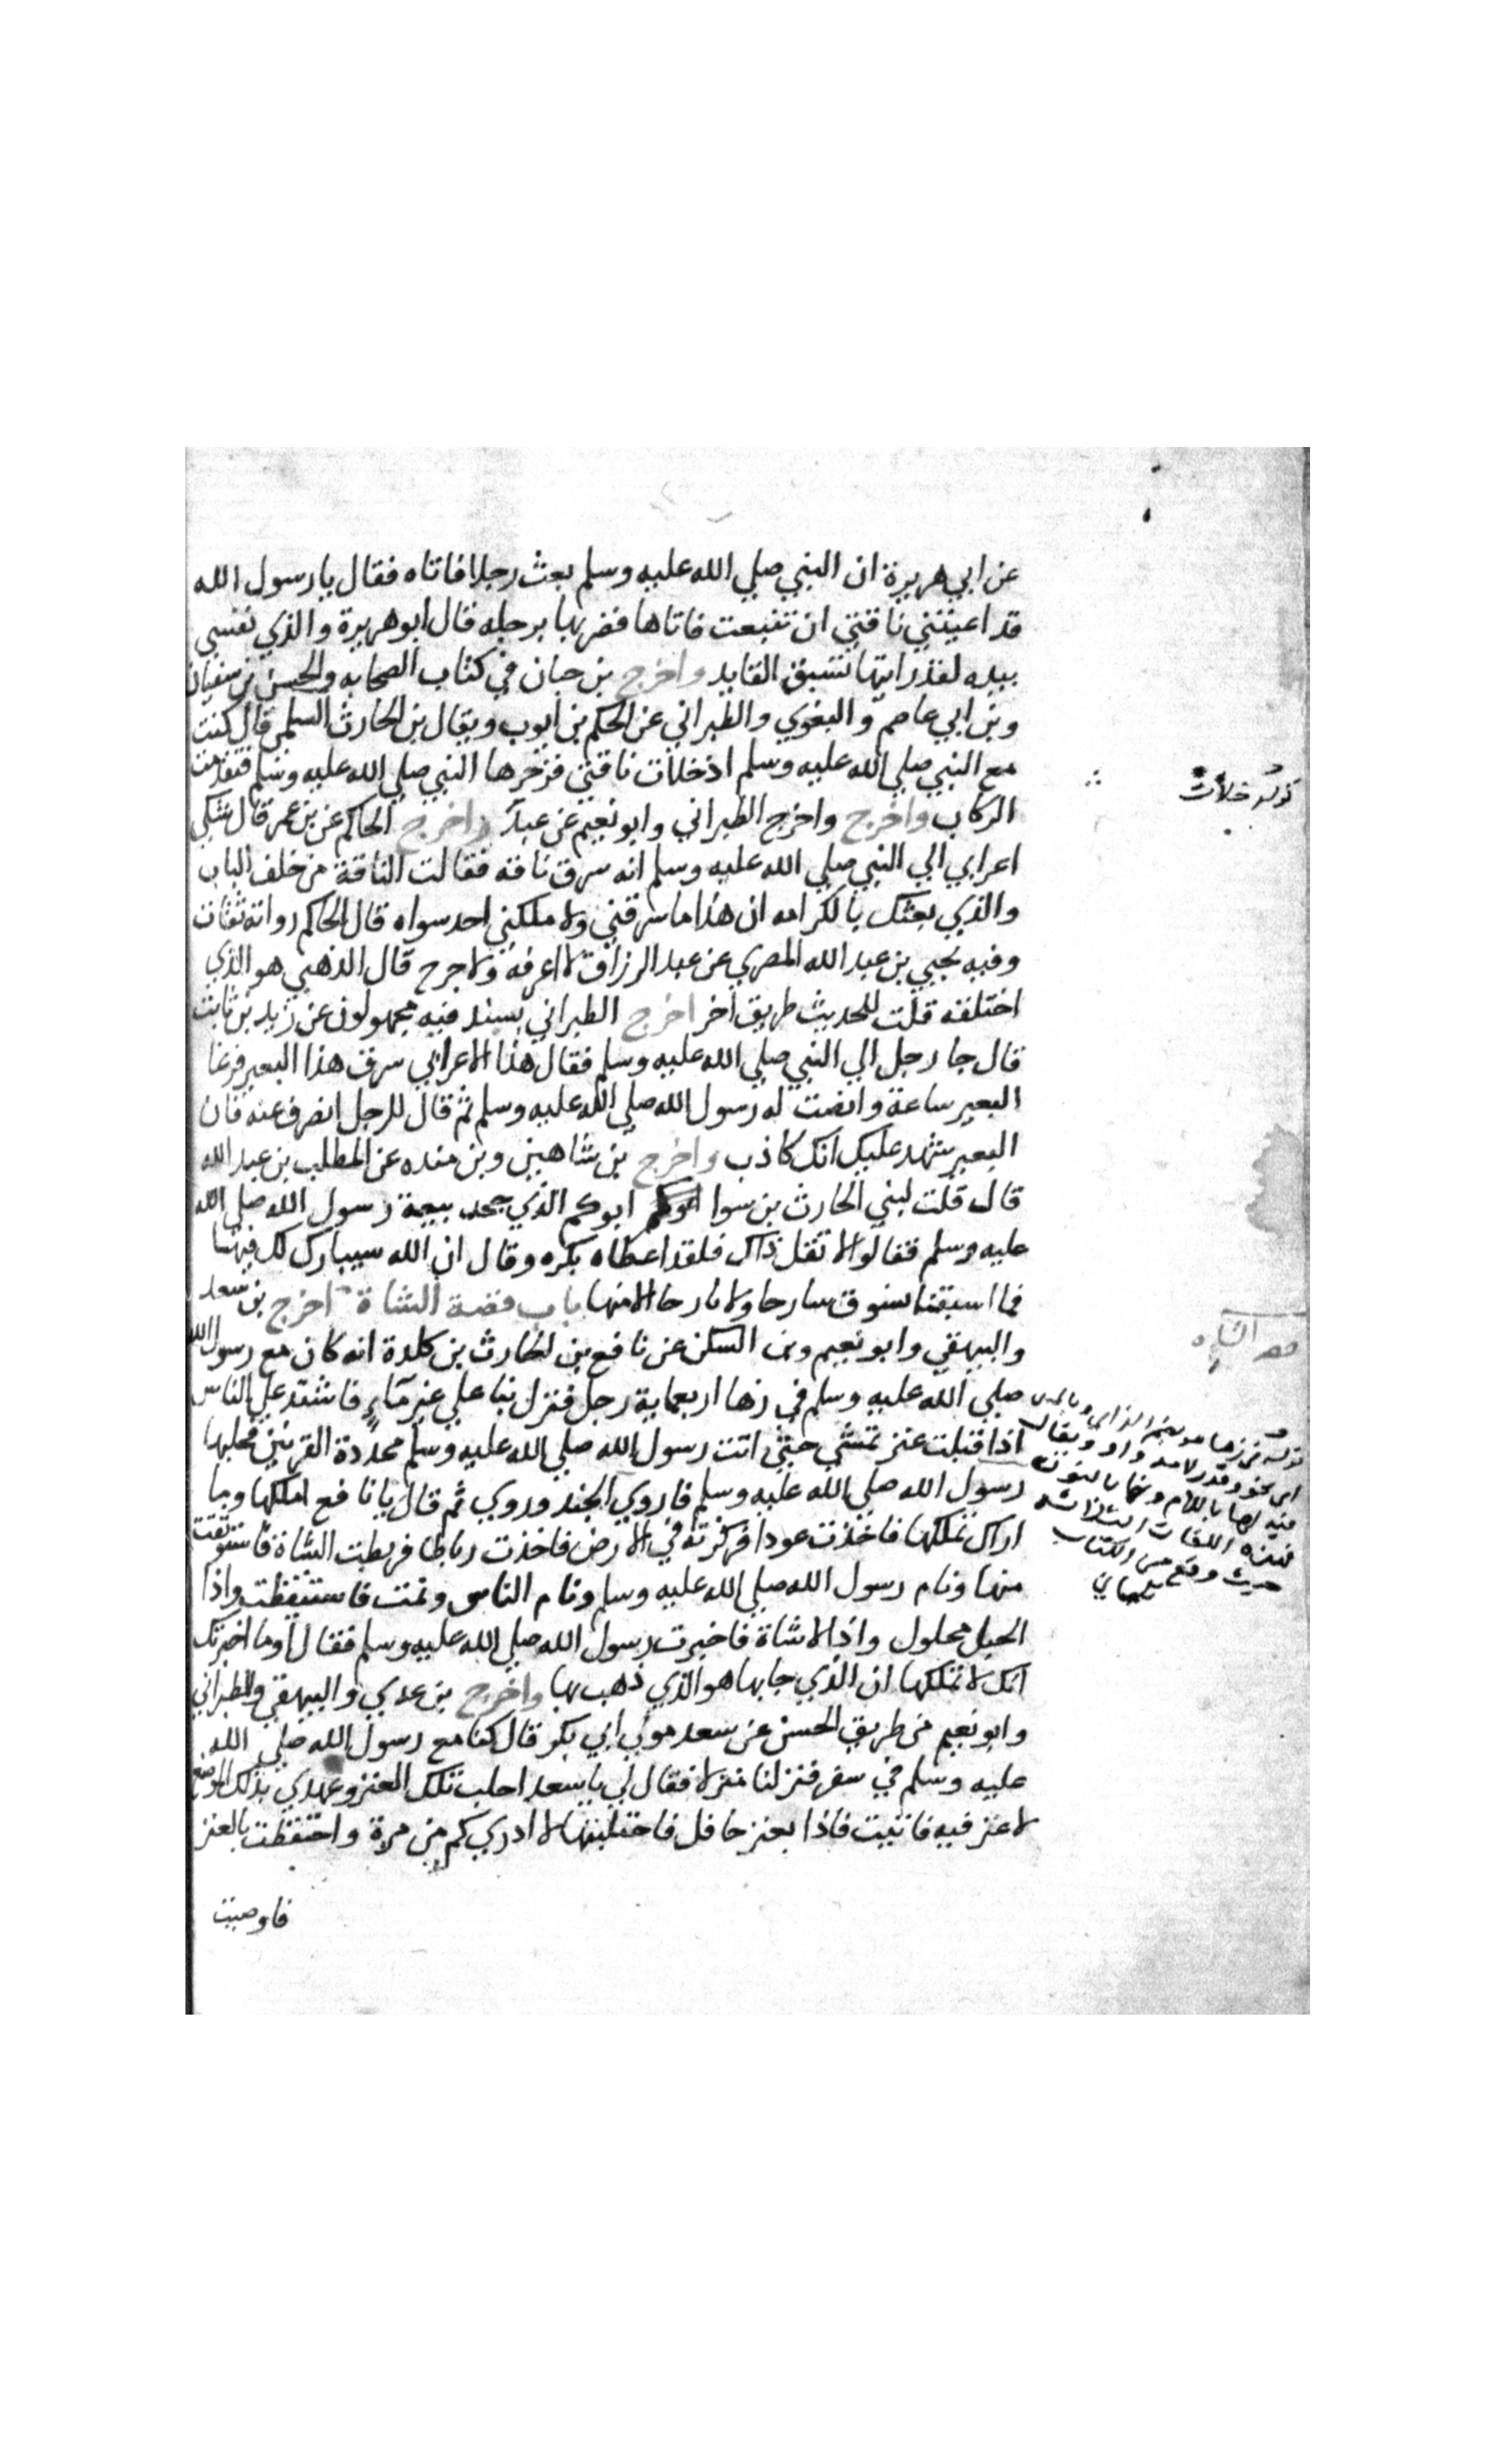 عن ابي هريرة ان النبي صلي الله عليه وسلم بعث رجلا فاتاه فقال يا رسول الله
قد اعيتني ناقتي ان تنبعث فاتاها فضربها برجله قال ابو هريرة والذي نفسي
بيده لقد رايتها تسبق القايد واخرج بن حبان في كتاب الصحابه والحسن بن سفيان
وبن ابي عاصم والبغوي والطبراني عن الحكم بن ايوب ويقال بن الحارث السلمي قال كنت
مع النبي صلي الله عليه وسلم اذ خلات ناقتي فزجرها النبي صلي الله عليه وسلم فتقدمت
قوله خلات
الركاب واخرج واخرج الطبراني وابو نعيم عن عبد واخرج الحاكم عن بن عمر قال شكي
اعرابي الي النبي صلي الله عليه وسلم انه سرق ناقه فقالت الناقة من خلف الباب
والذي بعثك بالكرامه ان هذا ما سرقني ولا ملكني احد سواه قال الحاكم رواته ثقات
وفيه يحيي بن عبد الله المصري عن عبد الرزاق لا اعرفه ولا جرح قال الذهبي هو الذي
اختلقه قلت للحديث طريق اخر اخرج الطبراني بسند فيه مجهولون عن زيد بن ثابت
قال جا رجل الي النبي صلي الله عليه وسلم فقال هذا الاعرابي سرق هذا البعير فرغا
البعير ساعة وانصت له رسول الله صلي الله عليه وسلم ثم قال للرجل انصرف عنه فان
البعير شهد عليك انك كاذب واخرج بن شاهين وبن منده عن المطلب بن عبد الله
قال قلت لبني الحارث بن سوا ابوكم الذي جحد بيعة رسول الله صلي الله
عليه وسلم فقالوا لا تقل ذاك فلقد اعطاه بكره وقال ان الله سيبارك لك فيها
فما اسبقنا نسوق سارحا ولا بارحا الا منها باب قصة الشاة اخرج بن سعد
والبيهقي وابو نعيم وبن السكن عن نافع بن الحارث بن كلدة انه كان مع رسول الله
صلي الله عليه وسلم في زها اربعماية رجل فنزل بنا علي غير مآء فاشتد علي الناس
اذ اقبلت عنز تمشي حتي اتت رسول الله صلي الله عليه وسلم محددة القرنين فحلبها
رسول الله صلي الله عليه وسلم فاروي الجند وروي ثم قال يا نافع املكها وما
اراك تملكها فاخذت عودا فركزته في الارض فاخذت رباطا فربطت الشاة فاستوثقت
منها ونام رسول الله صلي الله عليه وسلم ونام الناس ونمت فاستيقظت واذا
الحبل محلول واذا لا شاة فاخبرت رسول الله صلي الله عليه وسلم فقال اوما اخبرتك
انك لا تملكها ان الذي جا بها هو الذي ذهب بها واخرج بن عدي والبيهقي والطبراني
وابو نعيم من طريق الحسن عن سعد مولي ابي بكر قال كنا مع رسول الله صلي الله
عليه وسلم في سفر فنزلنا منزلا فقال لي يا سعد احلب تلك العنز وعهدي بذلك الموضع
لا عنز فيه فاتيت فاذا بعنز حافل فاحتلبتها لا ادري كم من مرة واحتفظت بالعنز
فاوصيت
قوله في زها هو بضم الزاي وبالمد
اي نحو وقدر لامه واو ويقال
فيه لها باللام ونها بالنون
فهذه اللغات الثلاثة
حيث وقع من الكتاب